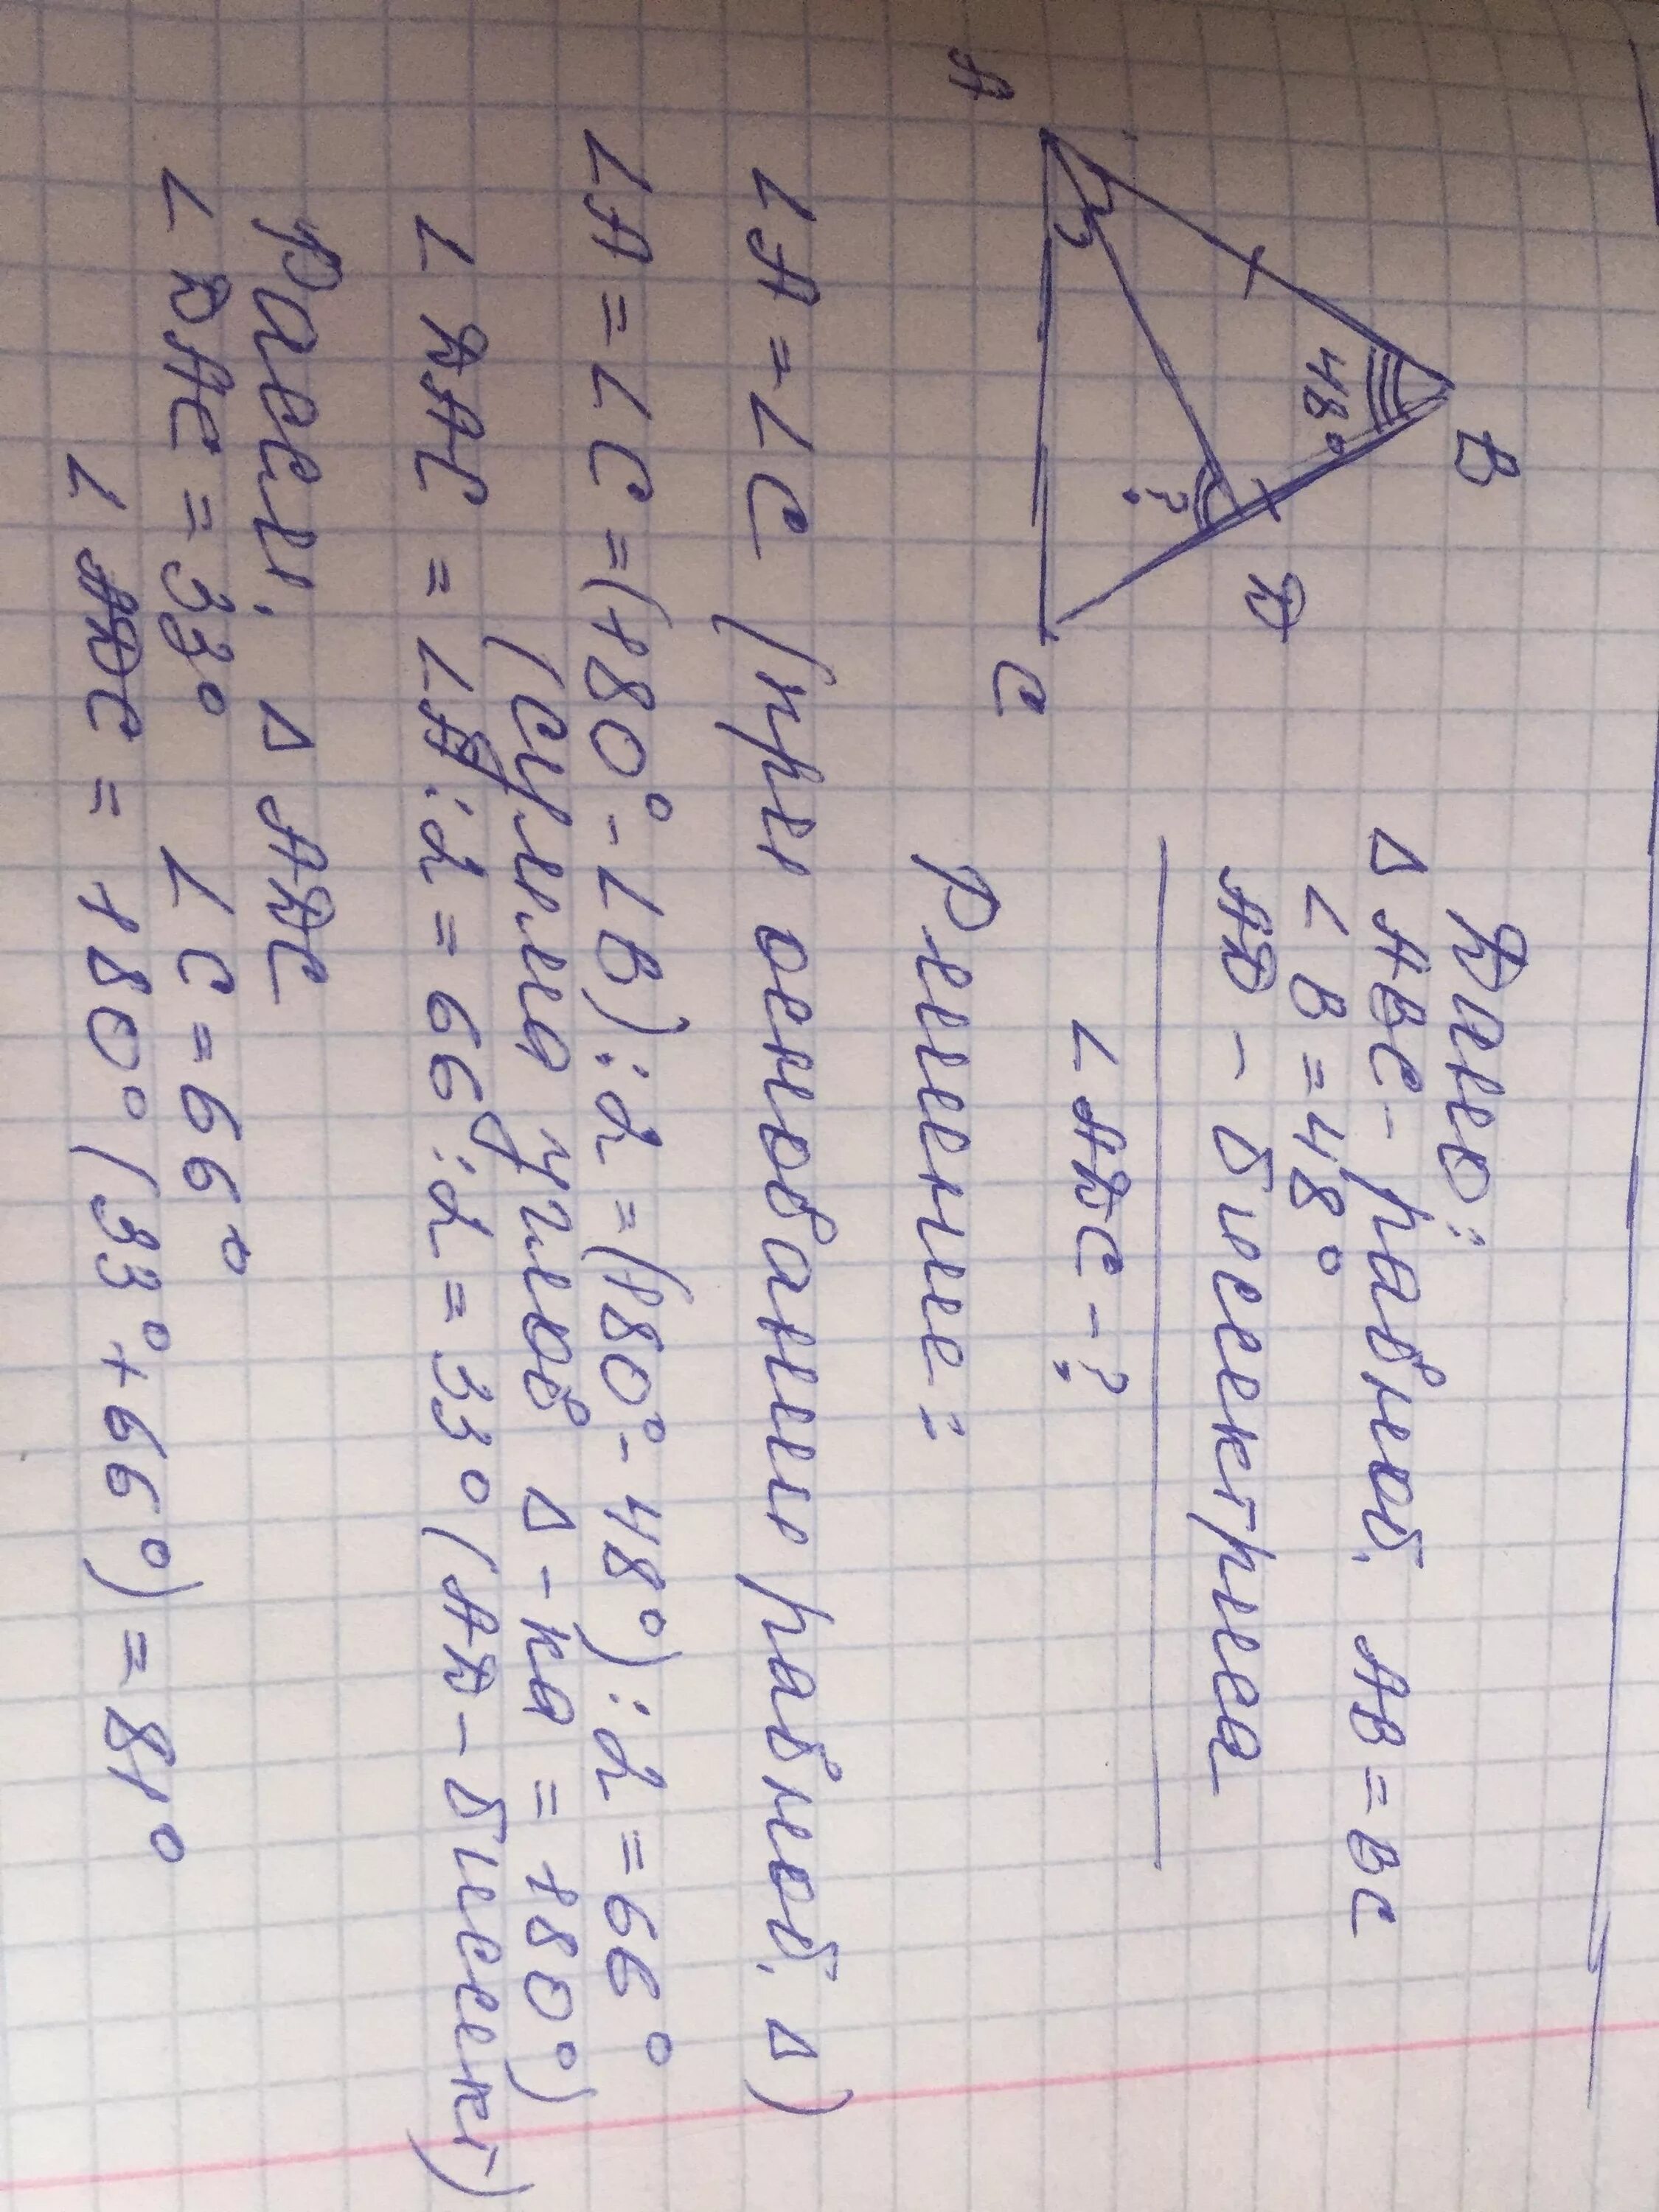 B
48°
D
?
A
C
Дано:
Δ ABC - равноб. AB = BC
∠ B = 48°
AD - биссектриса
∠ ADC - ?
Решение:
∠A = ∠C (при основании равноб. Δ)
∠A = ∠C = (180° - ∠B) : 2 = (180° - 48°) : 2 = 66°
(сумма углов Δ-ка = 180°)
∠ DAC = ∠A : 2 = 66 : 2 = 33° (AD - биссект)
Рассм. Δ ADC
∠ DAC = 33° ∠C = 66°
∠ ADC = 180° (33° + 66°) = 81°